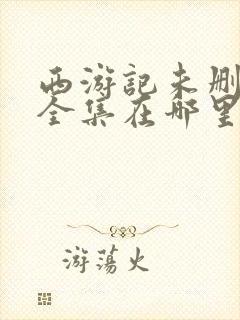 西游记未删
全集在哪里
游荡火